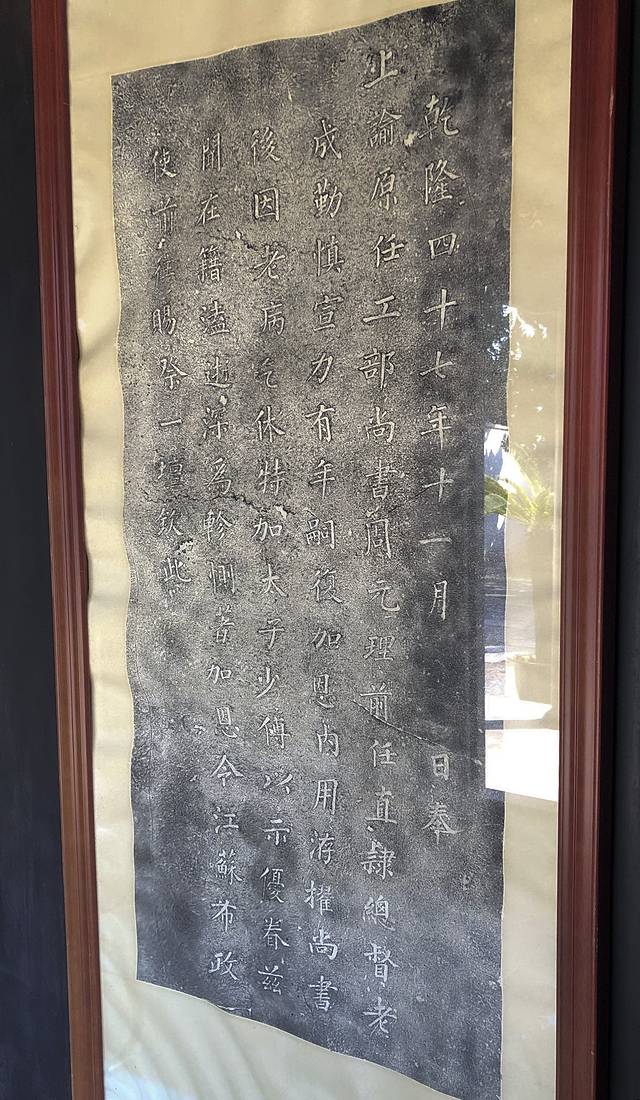 乾隆四十七年十一月 日奉
上諭原任工部尚書周元理前任直隸總督老
成勤慎宣力有年嗣復加恩內用洊擢尚書
後因老病乞休特加太子少傅以示優眷茲
聞在籍溘逝深為軫惻著加恩令江蘇布政
使前往賜祭一壇欽此